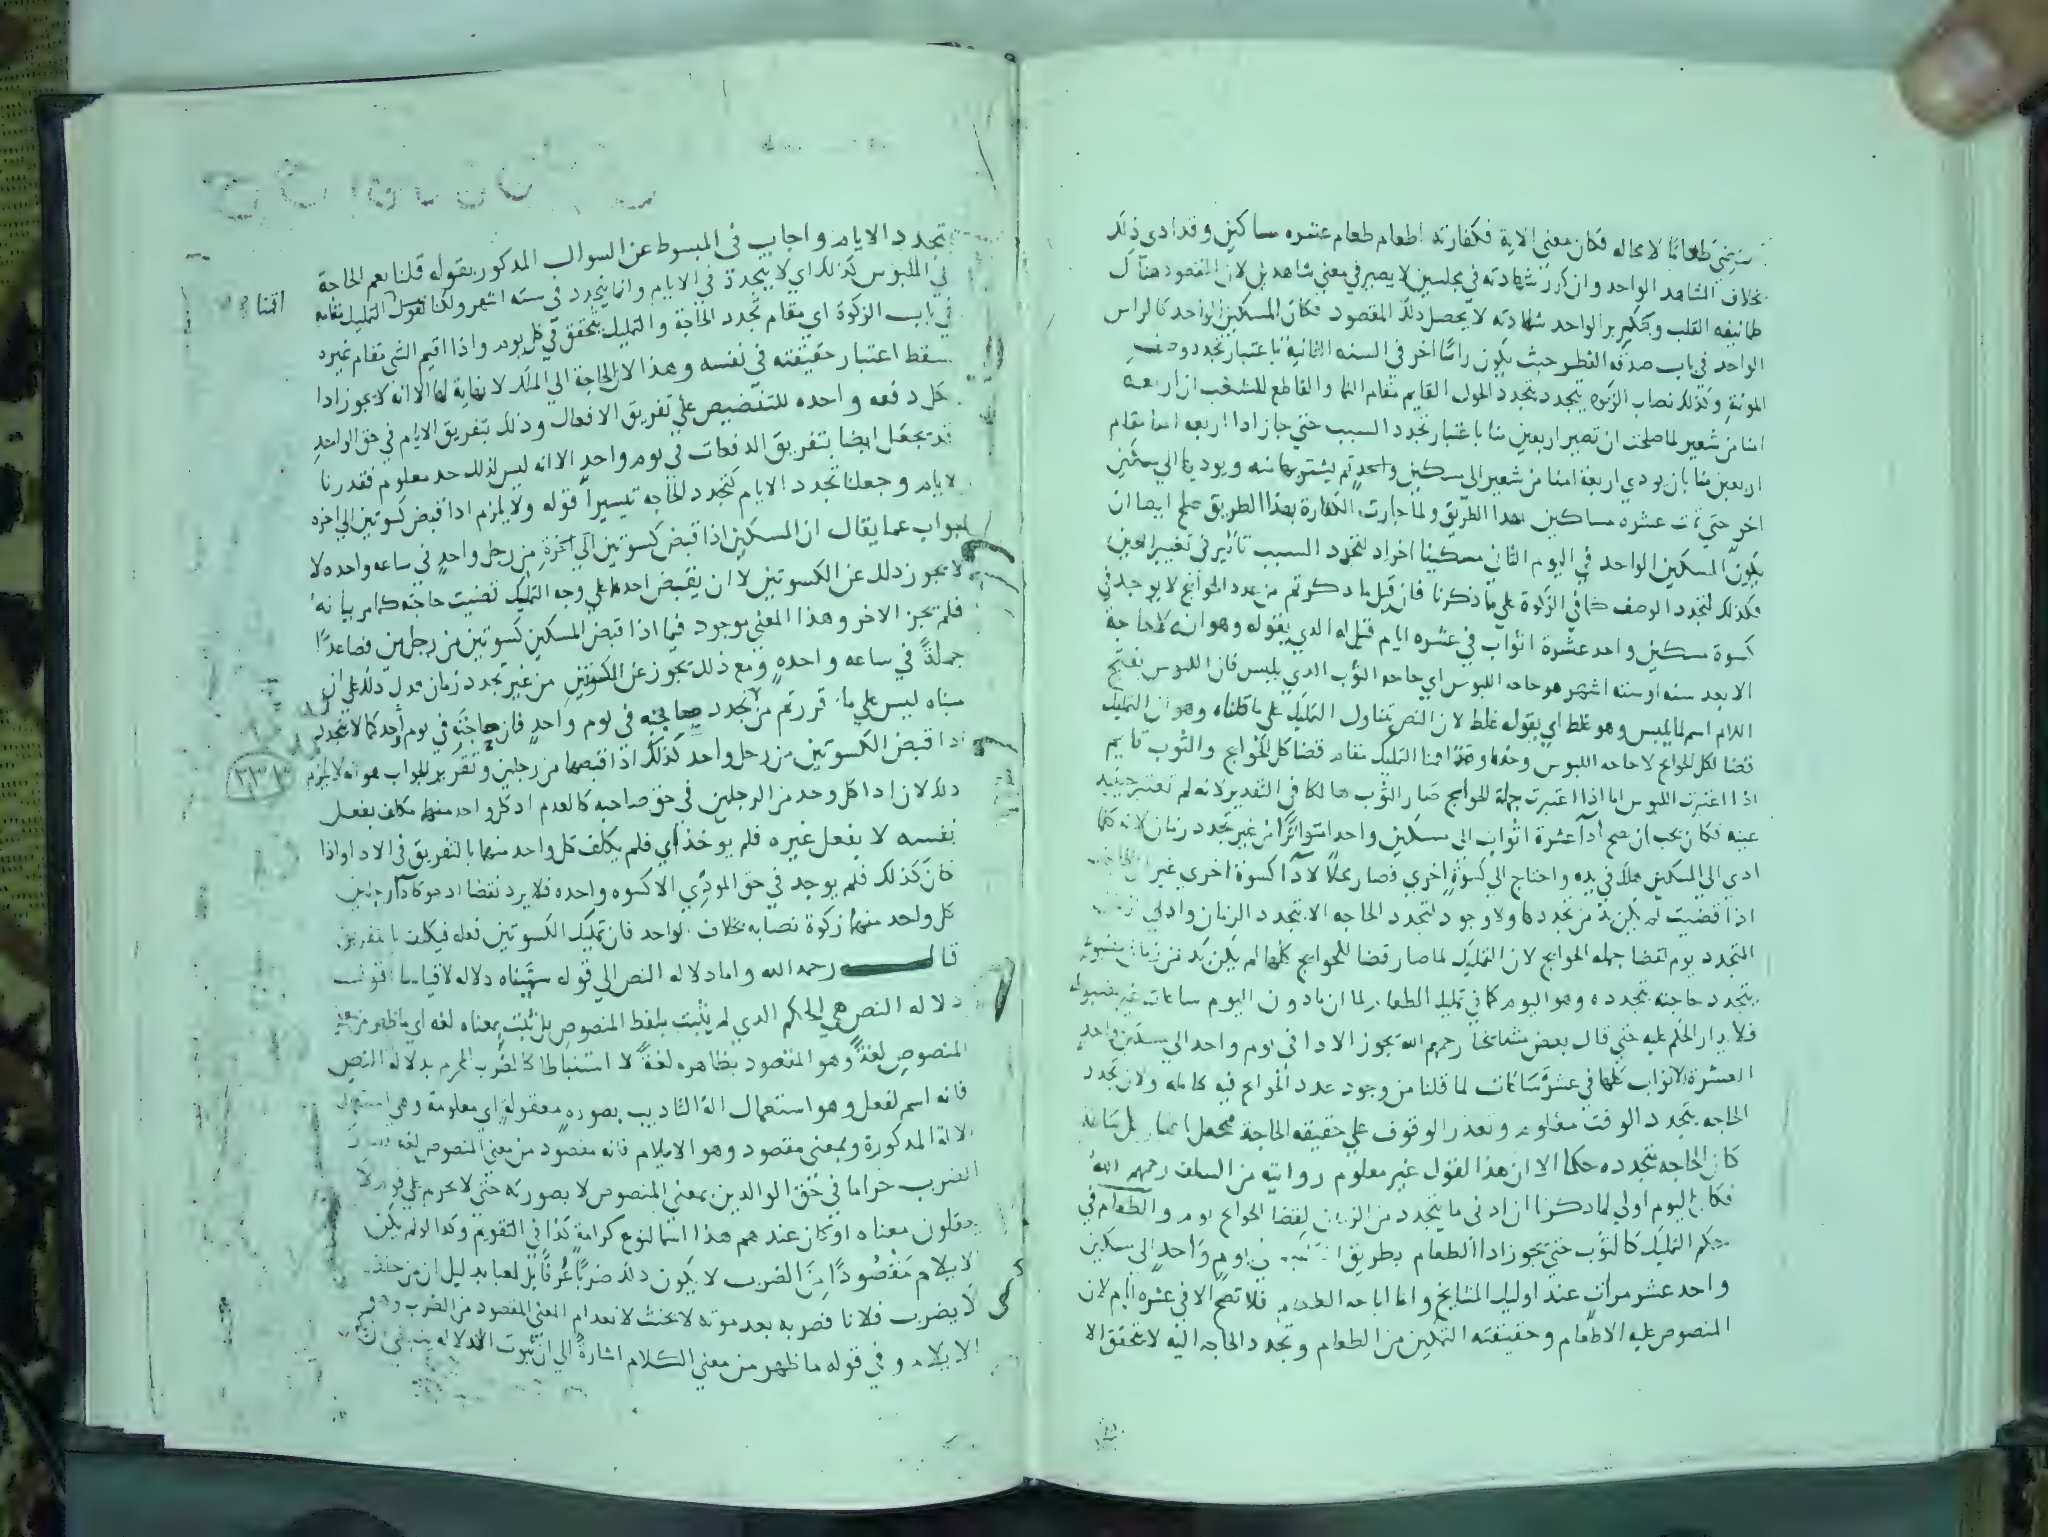 طعاما لا محاله فكان معنى الاية فكفارته اطعام طعام عشره مساكين وقد ادى ذلك
بخلاف الشاهد الواحد وان كرر شهادته في مجلسين لا يصير في معنى شاهدين لان المقصود هناك
طمانينه القلب وبتكرير الواحد شهادته لا يحصل ذلك المقصود فكان المسكين الواحد كالراس
الواحد في باب صدقه الفطر حيث يكون راسا اخر في السنه الثانية باعتبار تجدد وصف
المونة وكذلك نصاب الزكوه يتجدد بتجدد الحول القايم مقام النما والقاطع للشغب ان اربعه
امنا من شعير لما صلحت ان تصير اربعين منا باعتبار تجدد السبب حتى جاز ادا اربعه امنا مقام
اربعين منا بان يودي اربعة امنا من شعير الى مسكين واحد ثم يشتريها منه ويوديها الى مسكين
اخر حتى تمت عشره مساكين بهذا الطريق ولما جازت الكفارة بهذا الطريق صلح ايضا ان
يكون المسكين الواحد في اليوم الثاني مسكينا اخر اذ لتجدد السبب تاثير في تغيير العين
فكذلك لتجدد الوصف كما في الزكوة على ما ذكرنا فان قيل ما ذكرتم من عدد الحوايج لا يوجد في
كسوة مسكين واحد عشرة اثواب في عشره ايام قيل له الذي يقوله وهو انه لا حاجة
الا بعد سنه او ستة اشهر هو حاجه اللبوس اي حاجه الثوب الذي يلبس فان اللبوس بفتح
اللام اسم لما يلبس وهو غلط اي بقوله غلط لان النص تناول التمليك على ما قلناه وهو ان التمليك
قضا لكل الحوايج لا حاجه اللبوس وحدها وقد اقمنا التمليك مقام قضا كل الحوايج والثوب قايم
اذا اعتبرت اللبوس اما اذا اعتبرت جملة الحوايج صار الثوب هالكا في التقدير لانه لم تعتبر حقيقه
عينه فكان يجب ان يصح ادا عشرة اثواب الى مسكين واحد متواترا من غير تجدد زمان لانه كما
ادى الى المسكين في يده واحتاج الى كسوة اخرى فصار محلا لادا كسوة اخرى غير ان الحاجه
اذا قضيت لم يكن بد من تجددها ولا وجود لتجدد الحاجه الا بتجدد الزمان وادنى
المتجدد يوم لقضا جمله الحوايج لان التمليك لما صار قضا للحوايج كلها لم يكن بد من زمان مضبوط
يتجدد حاجته بتجدده وهو اليوم كما في تمليك الطعام لما ان ما دون اليوم ساعات غير مضبوطه
فلا يدار الحكم عليه حتى قال بعض مشايخنا رحمهم الله يجوز الادا في يوم واحد الى مسكين واحد
العشرة الاثواب كلها في عشرة ساعات لما قلنا من وجود عدد الحوايج فيه كامله ولان تجدد
الحاجه بتجدد الوقت معلوم وتعذر الوقوف على حقيقه الحاجة فيجعل كل ساعة
كان الحاجه متجدده حكما الا ان هذا القول غير معلوم روايته من السلف رحمهم الله
فكان اليوم اولى لما ذكرنا ان ادنى ما يتجدد من الزمان لقضا الحوايج يوم والطعام في
حكم التمليك كالثوب حتى يجوز ادا الطعام بطريق في يوم واحد الى مسكين
واحد عشر مرات عند اوليك المشايخ واما اباحه الطعام فلا تصح الا في عشره ايام لان
المنصوص عليه الاطعام وحقيقته التمكين من الطعام وتجدد الحاجه اليه لا يتحقق الا
بتجدد الايام واجاب في المبسوط عن السوال المذكور بقوله قلنا نعم الحاجة
في الملبوس كذلك اي لا يتجدد في الايام وانما يتجدد في سته اشهر ولكنا نقول التمليك مقامه
في باب الزكوة اي مقام تجدد الحاجة والتمليك يتحقق في كل يوم واذا اقيم الشى مقام غيره
سقط اعتبار حقيقته في نفسه وهذا لان الحاجة الى الملك لا نهاية لها الا انه لا يجوز ادا
كل دفعه واحده للتنصيص على تفريق الافعال وذلك بتفريق الايام في حق الواحد
قد يجعل ايضا بتفريق الدفعات في يوم واحد الا انه ليس لذلك حد معلوم فقدرنا
لايام وجعلنا تجدد الايام كتجدد الحاجه تيسيرا قوله ولا يلزم اذا قبض كسوتين الى اخره
جواب عما يقال ان المسكين اذا قبض كسوتين الى اخره من رجل واحد في ساعه واحده لا
لا يجوز ذلك عن الكسوتين لان بقبض احدهما على وجه التمليك قضيت حاجته كما مر بيانه
فلم يجز الاخر وهذا المعنى موجود فيما اذا قبض المسكين كسوتين من رجلين فصاعدا
جملة في ساعه واحده ومع ذلك يجوز عن الكسوتين من غير تجدد زمان فدل ذلك على ان
مبناه ليس على ما قررتم من تجدد حاجته في يوم واحد فان حاجته في يوم واحد كما لا تتجدد
اذا قبض الكسوتين من رجل واحد كذلك اذا قبضهما من رجلين وتقرير الجواب هو انه لا يلزم
ذلك لان ادا كل واحد من الرجلين في حق صاحبه كالعدم اذ كل واحد منهما مكلف بفعل
نفسه لا بفعل غيره فلم يوخذ اي فلم يكلف كل واحد منهما بالتفريق في الادا واذا
كان كذلك فلم يوجد في حق المودي الا كسوه واحده فلا يرد نقضا اذ هو كادا رجلين
كل واحد منهما زكوة نصابه بخلاف الواحد فان تمليك الكسوتين فعله فيكلف بالتفريق
قال رحمه الله واما دلاله النص الى قوله سميناه دلاله لا قياسا اقول
دلاله النص هي الحكم الذي لم يثبت بلفظ المنصوص بل ثبت بمعناه لغه اي ما ظهر من معنى
المنصوص لغة وهو المقصود بظاهره لغة لا استنباطا كالضرب المحرم بدلاله النص
فانه اسم لفعل وهو استعمال الة التاديب بصوره معقولة اي معلومة وهي استعمال
الالة المذكورة وبمعنى مقصود وهو الايلام فانه مقصود من معنى المنصوص لغه
الضرب حراما في حق الوالدين بمعنى المنصوص لا بصورته حتى لا يحرم على قوم لا
يعقلون معناه او كان عندهم هذا اسما لنوع كرامة كذا في التقويم وكذا لو لم يكن
الايلام مقصودا من الضرب لا يكون ذلك ضربا عرفا بل لعبا بدليل ان من حلف
لا يضرب فلانا فضربه بعد موته لا يحنث لانعدام المعنى المقصود من الضرب وهو
الايلام وفي قوله ما ظهر من معنى الكلام اشارة الى ان ثبوت الدلاله ينبني
اقمنا
٢٣٢